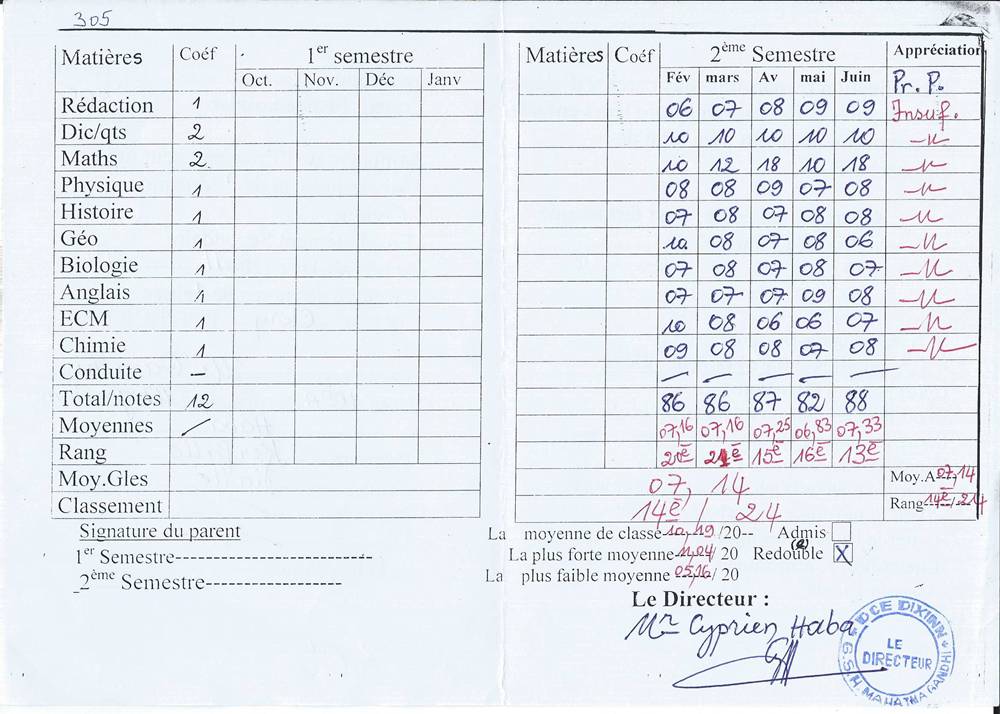 305
Matières Coéf 1er semestre
Oct. Nov. Déc Janv
Rédaction 1
Dic/qts 2
Maths 2
Physique 1
Histoire 1
Géo 1
Biologie 1
Anglais 1
ECM 1
Chimie 1
Conduite –
Total/notes 12
Moyennes
Rang
Moy.Gles
Classement
Signature du parent
1er Semestre-------------------------
2ème Semestre-----------------
Matières Coéf 2ème Semestre Appréciation
Fév mars Av mai Juin Pr. P.
06 07 08 09 09 Insuf.
10 10 10 10 10 –//–
10 12 18 10 18 –//–
08 08 09 07 08 –//–
07 08 07 08 08 –//–
10 08 07 08 06 –//–
07 08 07 08 07 –//–
07 07 07 09 08 –//–
10 08 06 06 07 –//–
09 08 08 07 08 –//–
– – – – –
86 86 87 82 88
07,16 07,16 07,25 06,83 07,33
21è 15è 16è 13è
07, 14 Moy.A 07,14
14è / 24 Rang 14è/24
La moyenne de classe 10,19 /20-- Admis
La plus forte moyenne 11,04 / 20 Redouble (e) X
La plus faible moyenne 05,16 / 20
Le Directeur :
Mr Cyprien Haba
DCE DIXINN
LE DIRECTEUR
G.S.H. MAHATMA GANDHI